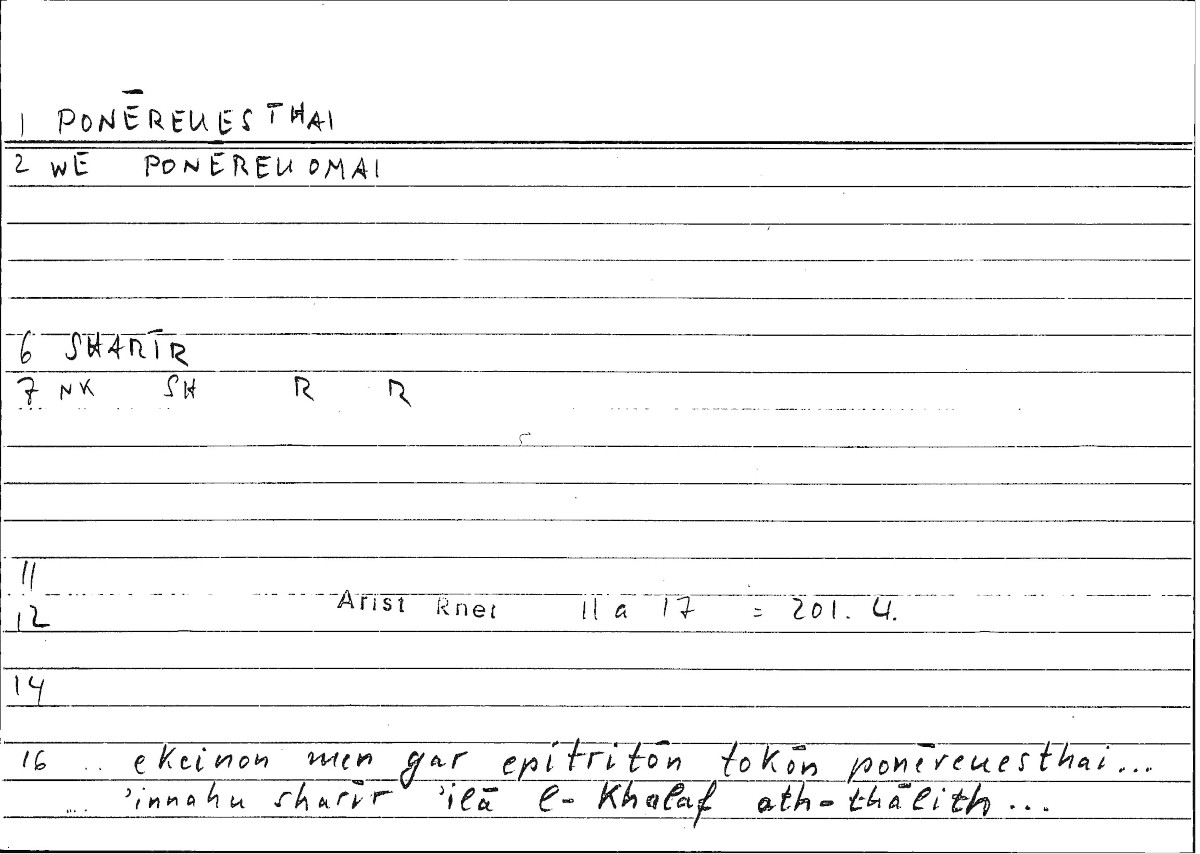 1 PONĒREUESTHAI
2 WE PONĒREUOMAI
6 SHARĪR
7 NK SH R R
11
12 Arist Rhet 11 a 17 = 201. 4.
14
16 .. ekeinon men gar epitritōn tokōn ponēreuesthai...
... 'innahu sharīr 'ilā l-Khalaf ath-thālith...